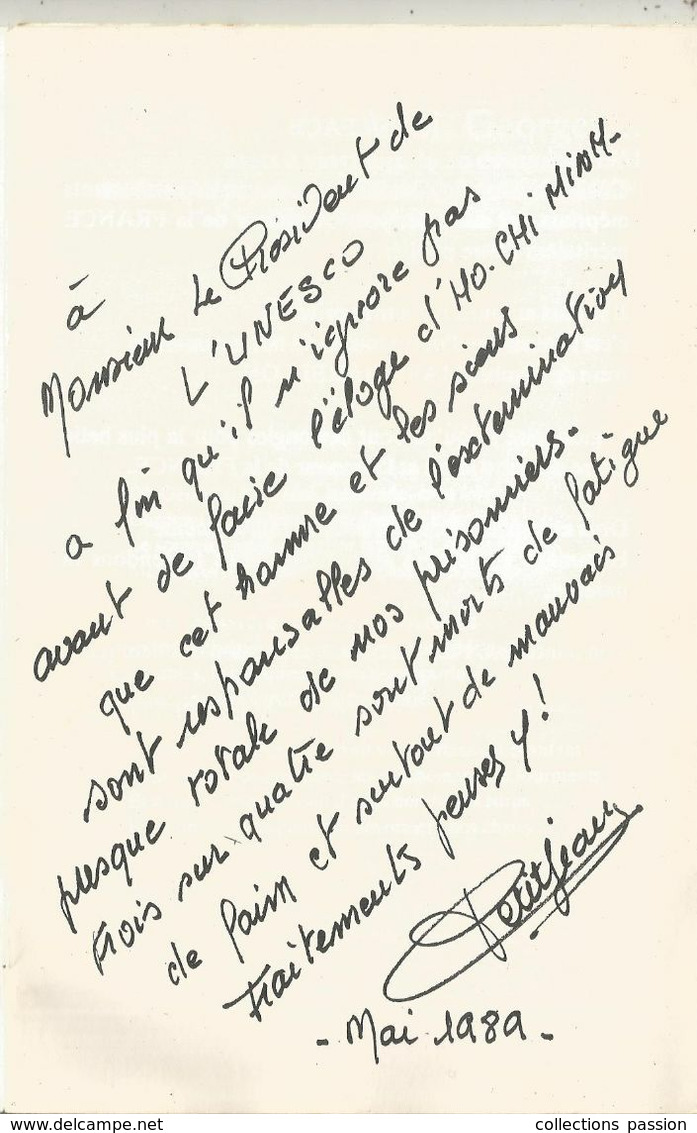 à
Monsieur Le Président de
L'UNESCO
a fin qu'il n'ignore pas
avant de faire l'éloge d'HO.CHI MINH-
que cet homme et les siens
sont responsables de l'extermination
presque totale de nos prisonniers.
trois sur quatre sont morts de fatigue
de faim et surtout de mauvais
traitements pensez y!
Petitjean
- Mai 1989 -
collections passion